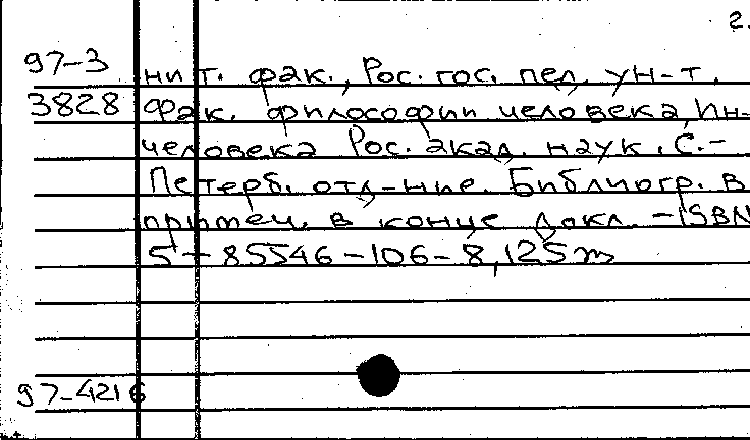 2.
97-3 нит. фак., Рос. гос. пед. ун-т.
3828 Фак. философии человека, Ин-
человека Рос. акад. наук. С.-
Петерб. отд-ние. Библиогр. в
примеч. в конце докл. - ISBN
5-85546-106-8, 125
97-4216